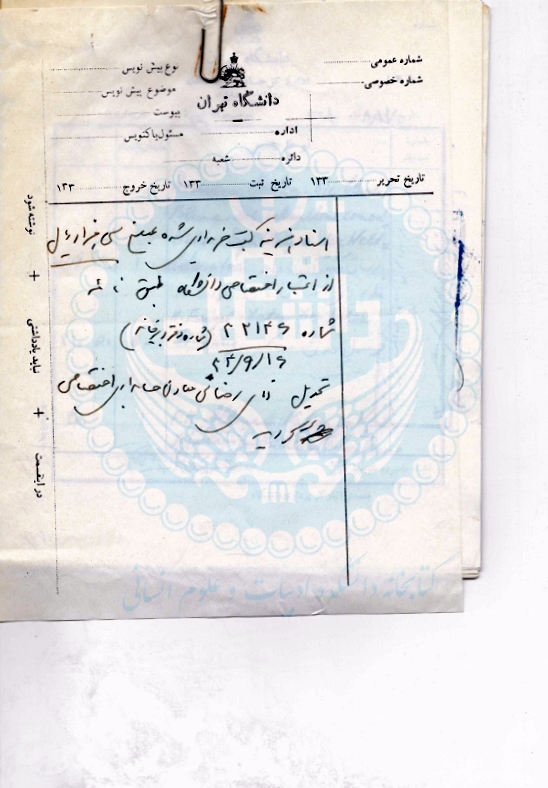 شماره عمومی
شماره خصوصی
نوع پیش نویس
موضوع پیش نویس
پیوست
مسئول پاکنویس
دانشگاه تهران
اداره
دائره شعبه
تاریخ تحریر ۱۳۳ تاریخ ثبت ۱۳۳ تاریخ خروج ۱۳۳
اسناد هزینه کتب خریداری شده بمبلغ سی هزار ریال
از اعتبار اختصاصی دانشگاه طبق نامه
شماره ۲۲۱۴۶ (شماره دفتر دبیرخانه)
۳۴/۹/۱۶
تحویل آقای رضائی حسابداری اختصاصی
گردید
در اینقسمت + نباید یادداشتی + نوشته شود
کتابخانه دانشکده ادبیات و علوم انسانی